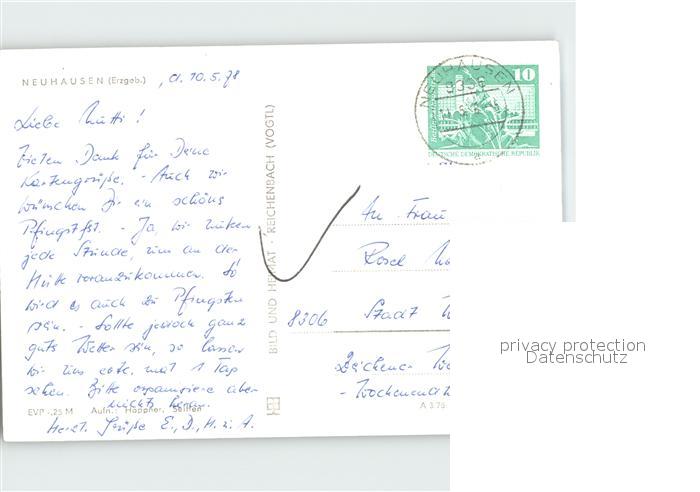 NEUHAUSEN (Erzgeb.)
, d. 10.5.78
Liebe Mutti!
Vielen Dank für Deine
Kartengrüße. - Auch wir
wünschen Dir ein schönes
Pfingstfst. - Ja, wir nutzen
jede Stunde, um an der
Hütte voranzukommen. So
wird es auch zu Pfingsten
sein. - Sollte jedoch ganz
gutes Wetter sein, so lassen
wir uns evtl. mal 1 Tag
sehen. Bitte organisiere aber
nichts
EVP -,25 M Aufn.: Höppner, Seiffen
Herzl. Grüße E., D., H. u. A.
BILD UND HEIMAT · REICHENBACH (VOGTL)
NEUHAUSEN
9336
10
DEUTSCHE DEMOKRATISCHE REPUBLIK
An Frau
Rosel
8306 Stadt
- Wochenend
A 3 75
privacy protection
Datenschutz